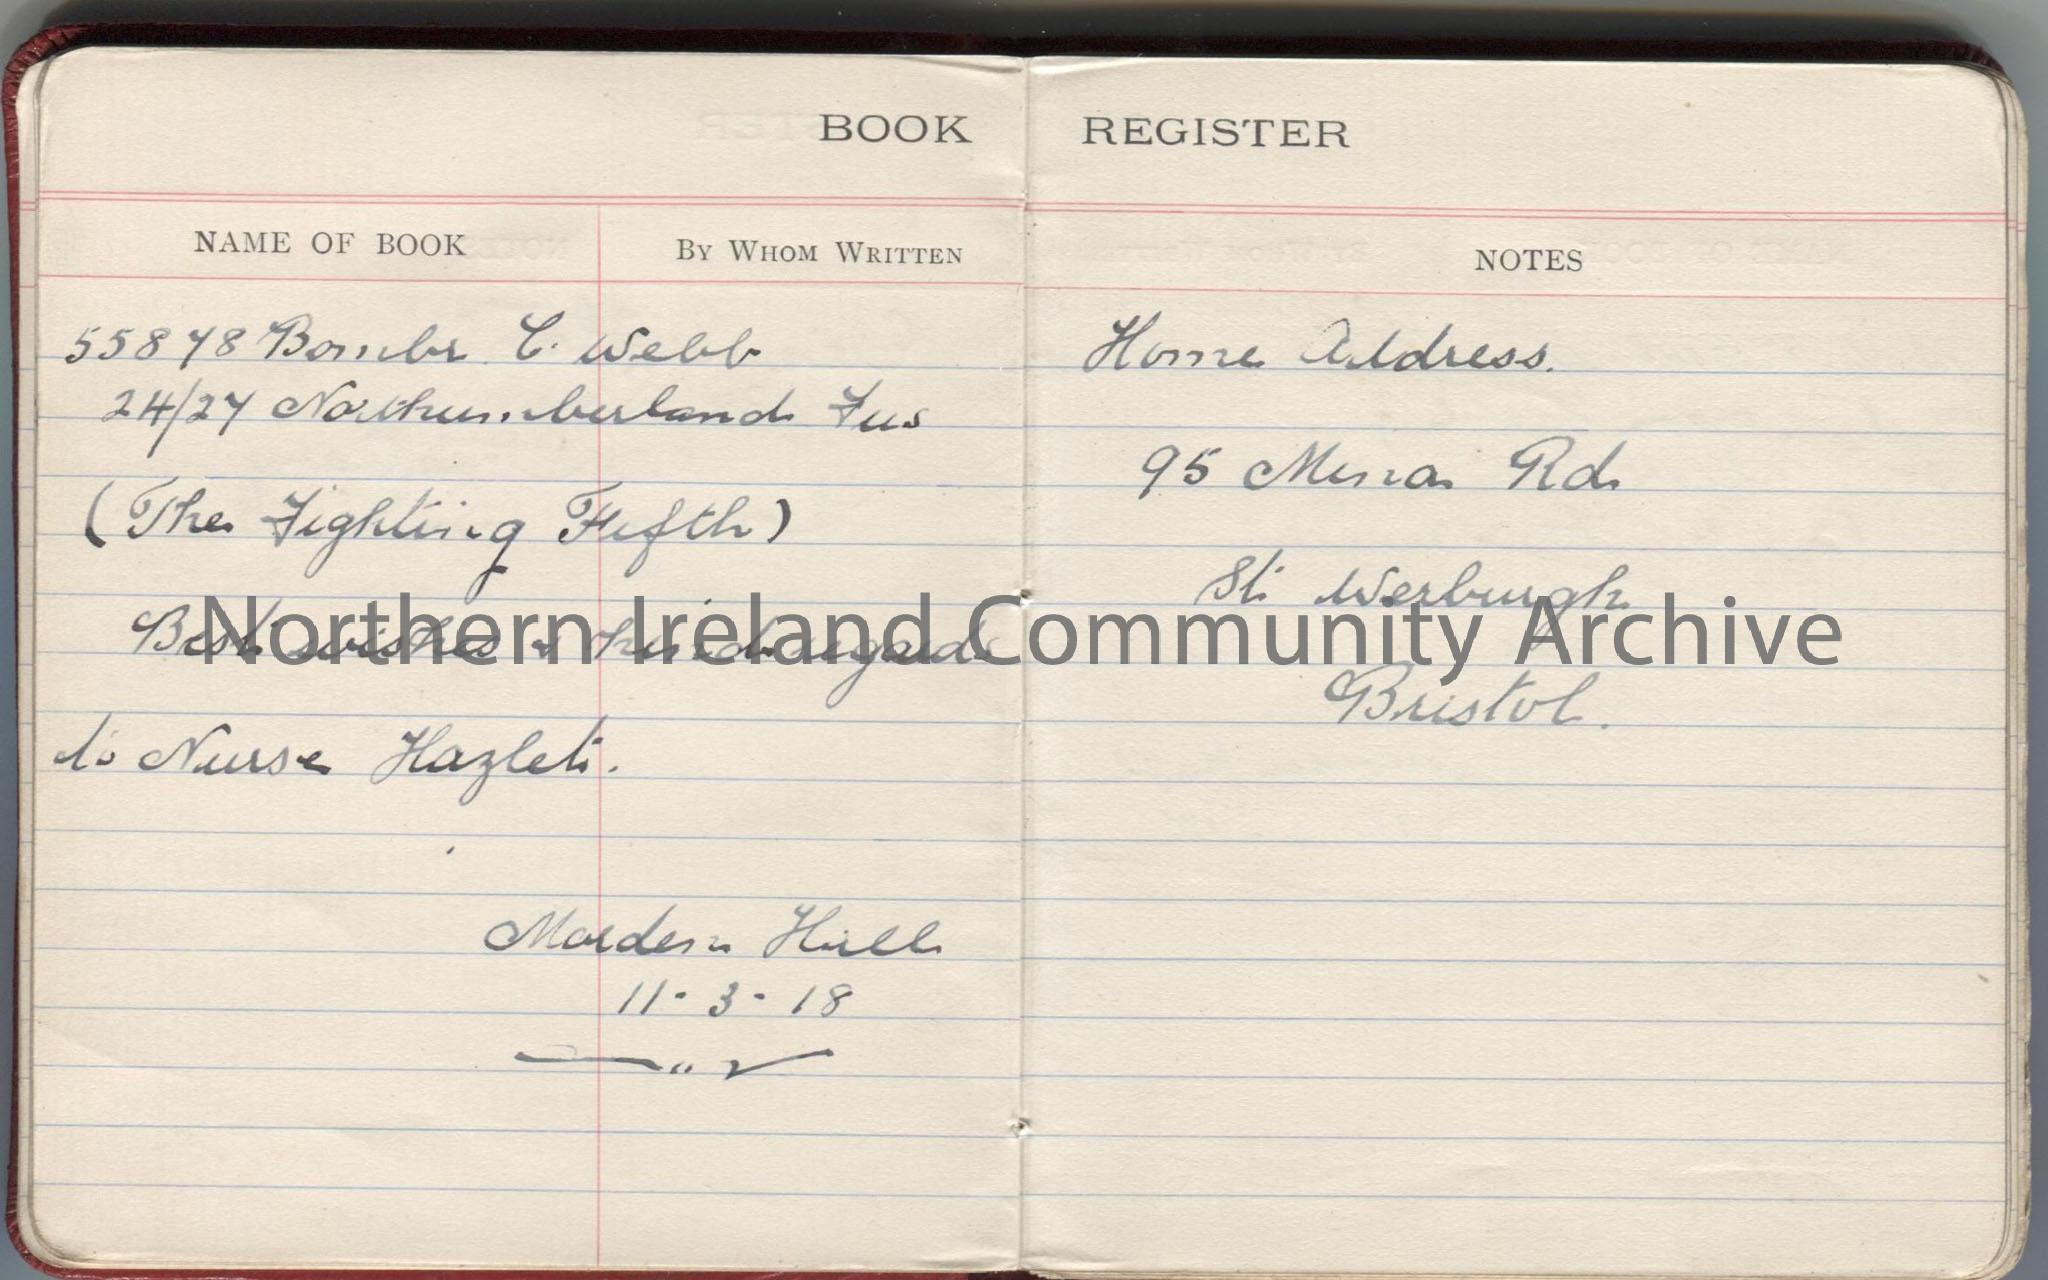 BOOK REGISTER
NAME OF BOOK
By Whom Written
NOTES
55878 Bombr C. Webb
24/27 Northumberland Fus
(The Fighting Fifth)
Best wishes & kind regards
to Nurse Hazlet.
Morden Hall
11-3-18
Home Address.
95 Mina Rd
St Werburgh
Bristol.
Northern Ireland Community Archive